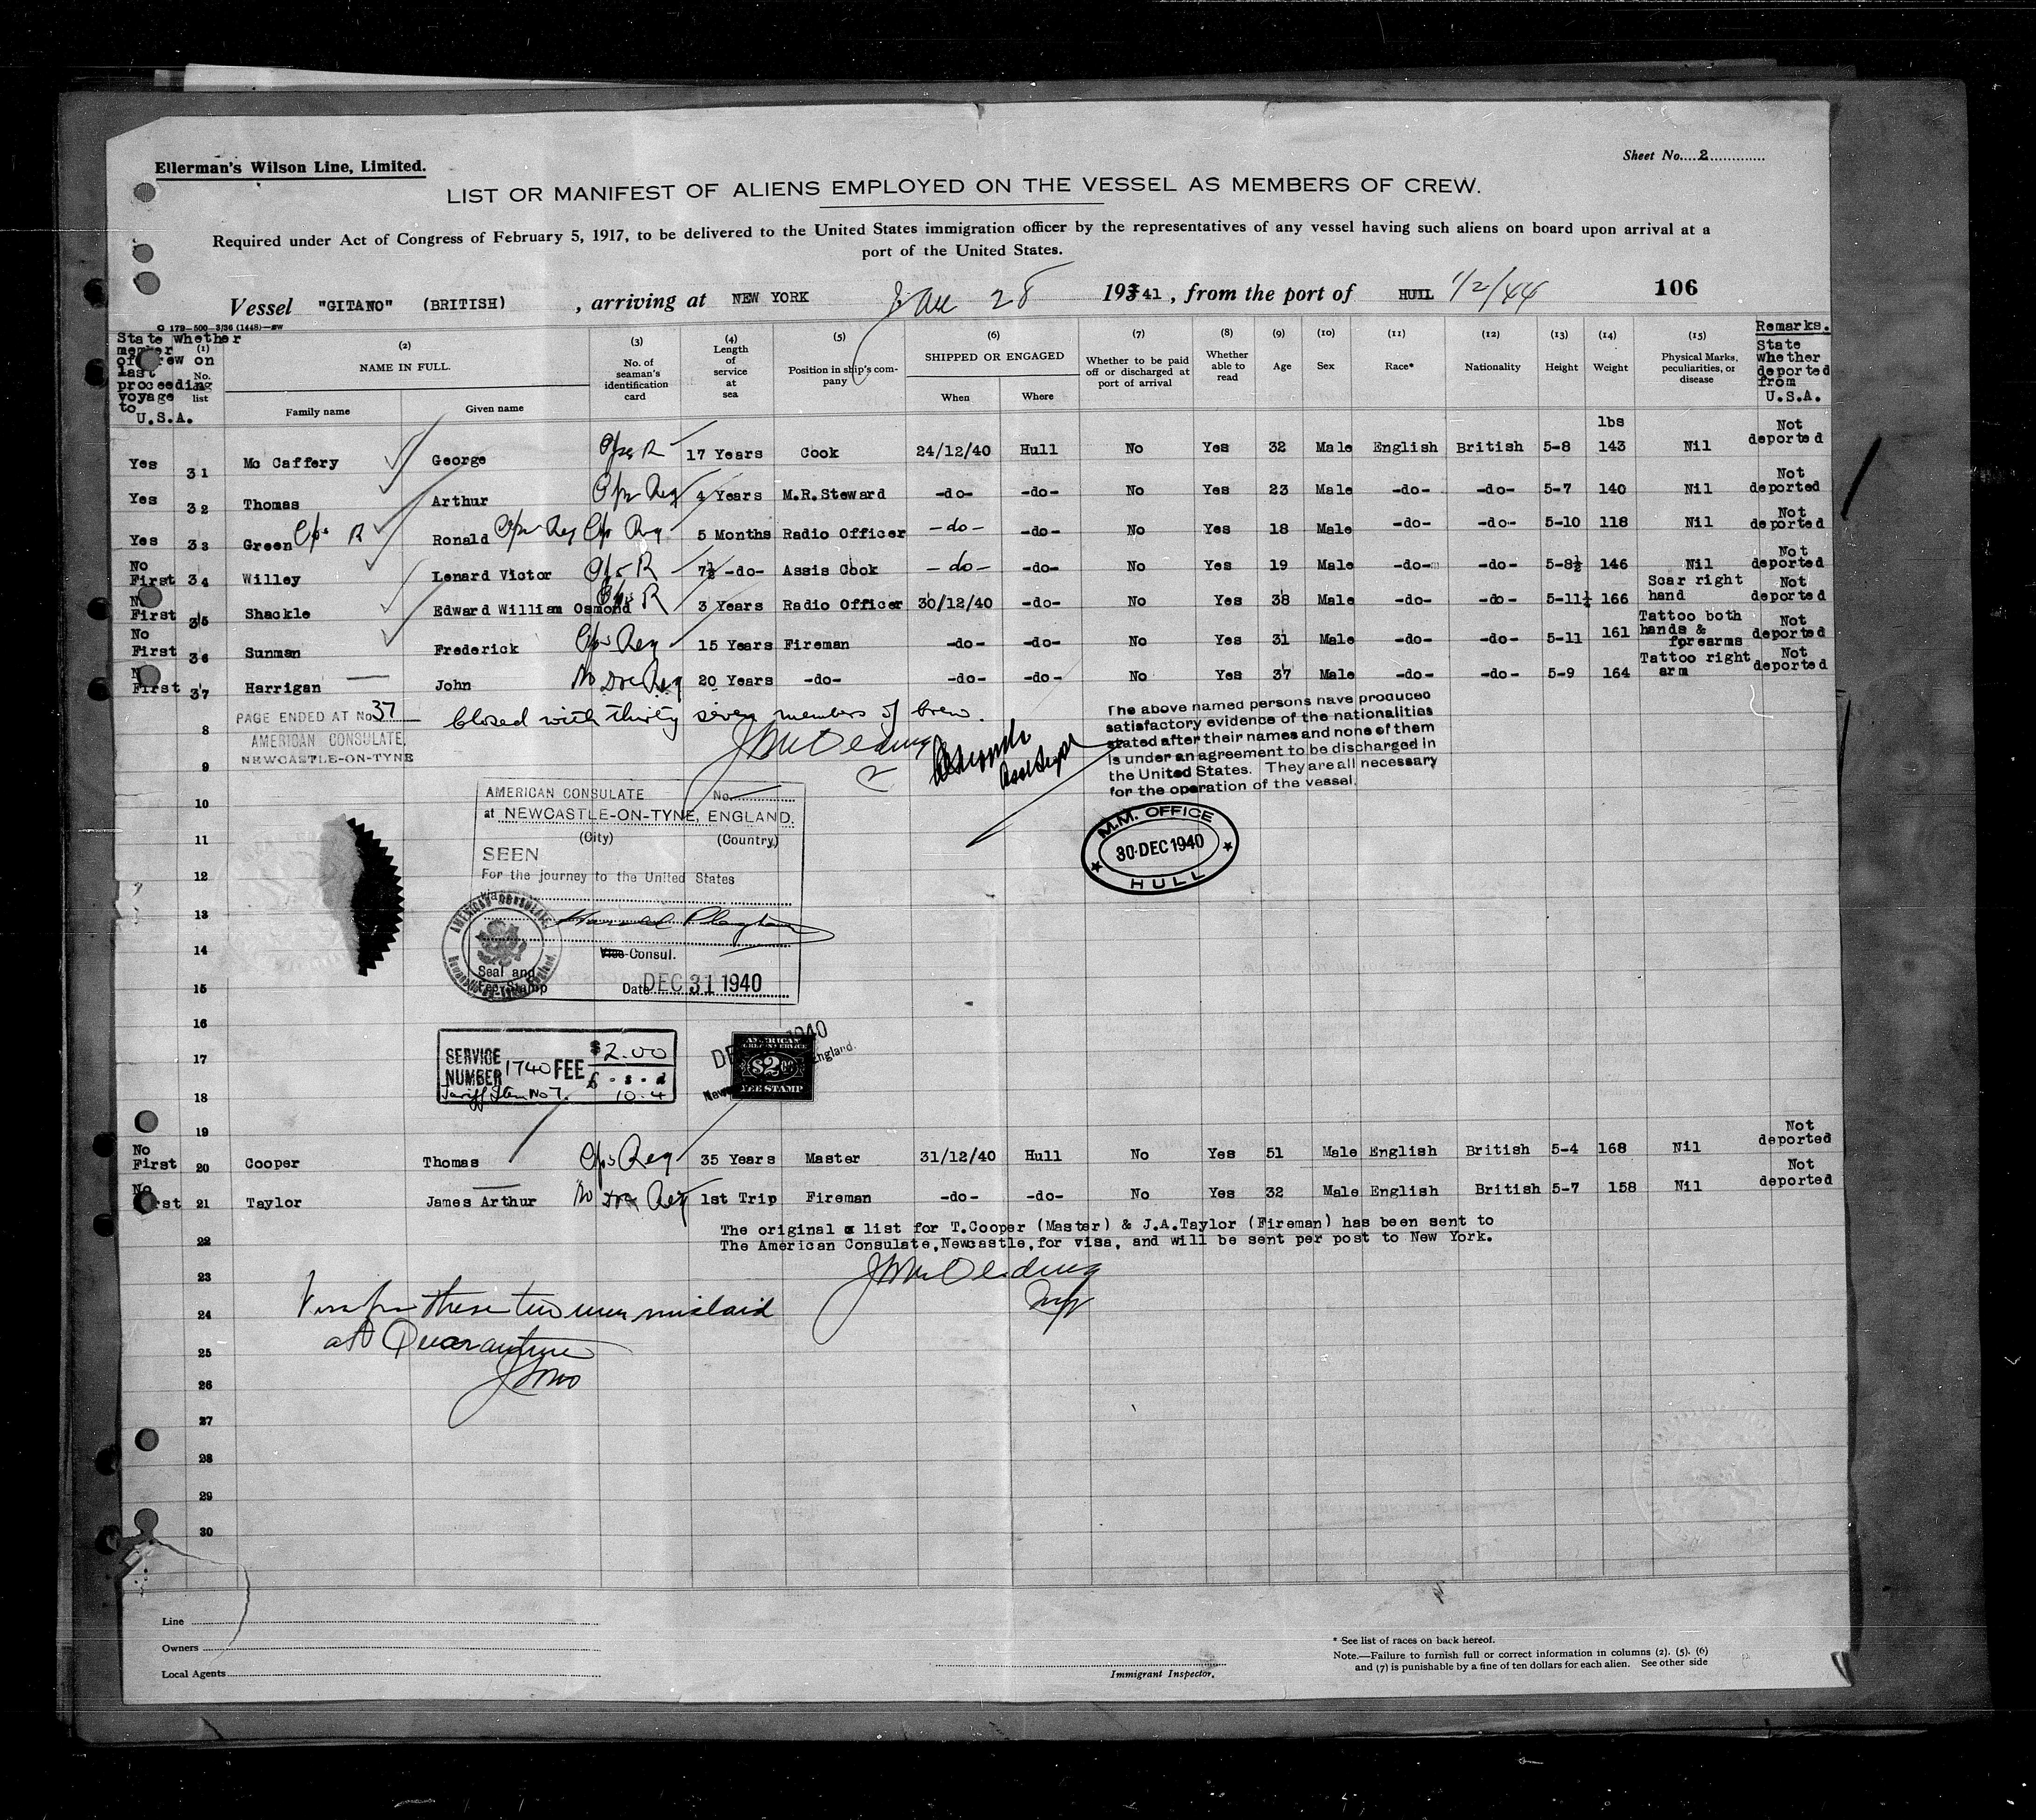 Ellerman's Wilson Line, Limited.
Sheet No....2.............
LIST OR MANIFEST OF ALIENS EMPLOYED ON THE VESSEL AS MEMBERS OF CREW.
Required under Act of Congress of February 5, 1917, to be delivered to the United States immigration officer by the representatives of any vessel having such aliens on board upon arrival at a
port of the United States.
Vessel "GITANO" (BRITISH) , arriving at NEW YORK Jan 28 19341 , from the port of HULL 1/2/44 106
G 179-500-3/36 (1448)-
State whether member of crew on last proceeding voyage to U.S.A.
(1) No. list
(2) NAME IN FULL.
Family name Given name
(3) No. of seaman's identification card
(4) Length of service at sea
(5) Position in ship's company
(6) SHIPPED OR ENGAGED
When Where
(7) Whether to be paid off or discharged at port of arrival
(8) Whether able to read
(9) Age
(10) Sex
(11) Race*
(12) Nationality
(13) Height
(14) Weight
(15) Physical Marks, peculiarities, or disease
Remarks. State whether deported from U.S.A.
lbs
Yes 31 Mc Caffery George Ops R 17 Years Cook 24/12/40 Hull No Yes 32 Male English British 5-8 143 Nil Not deported
Yes 32 Thomas Arthur Ops Reg 4 Years M.R.Steward -do- -do- No Yes 23 Male -do- -do- 5-7 140 Nil Not deported
Yes 33 Green Ops R Ronald Ops Reg Ops Reg 5 Months Radio Officer -do- -do- No Yes 18 Male -do- -do- 5-10 118 Nil Not deported
No First 34 Willey Lenard Victor Ops R 7½ -do- Assis Cook -do- -do- No Yes 19 Male -do- -do- 5-8½ 146 Nil Not deported
No First 35 Shackle Edward William Osmond Ops R 3 Years Radio Officer 30/12/40 -do- No Yes 38 Male -do- -do- 5-11½ 166 Scar right hand Not deported
No First 36 Sunman Frederick Ops Reg 15 Years Fireman -do- -do- No Yes 31 Male -do- -do- 5-11 161 Tattoo both hands & forearms Not deported
No First 37 Harrigan John No Doc Reg 20 Years -do- -do- -do- No Yes 37 Male -do- -do- 5-9 164 Tattoo right arm Not deported
PAGE ENDED AT No 37
AMERICAN CONSULATE,
NEWCASTLE-ON-TYNE
Closed with thirty seven members of crew.
The above named persons have produced
satisfactory evidence of the nationalities
stated after their names and none of them
is under an agreement to be discharged in
the United States. They are all necessary
for the operation of the vessel.
8
9
10
11
12
13
14
15
16
17
18
19
AMERICAN CONSULATE No.
at NEWCASTLE-ON-TYNE, ENGLAND.
(City) (Country)
SEEN
For the journey to the United States
via
Vice Consul.
Seal and
Fee Stamp
Date DEC 31 1940
AMERICAN CONSULATE
Newcastle-on-Tyne, England
M.M. OFFICE
30 DEC 1940
HULL
SERVICE NUMBER 1740 FEE $2.00
£ . s . d
Tariff Item No 7. 10.4
AMERICAN
$2.00
FEE STAMP
England.
No First 20 Cooper Thomas Ops Reg 35 Years Master 31/12/40 Hull No Yes 51 Male English British 5-4 168 Nil Not deported
No First 21 Taylor James Arthur No Doc Reg 1st Trip Fireman -do- -do- No Yes 32 Male English British 5-7 158 Nil Not deported
The original list for T.Cooper (Master) & J.A.Taylor (Fireman) has been sent to
The American Consulate,Newcastle,for visa, and will be sent per post to New York.
22
23
24
25
26
27
28
29
30
Visa for these two men mislaid
at Quarantine
Line
Owners
Local Agents
Immigrant Inspector.
* See list of races on back hereof.
Note.—Failure to furnish full or correct information in columns (2), (5), (6)
and (7) is punishable by a fine of ten dollars for each alien. See other side